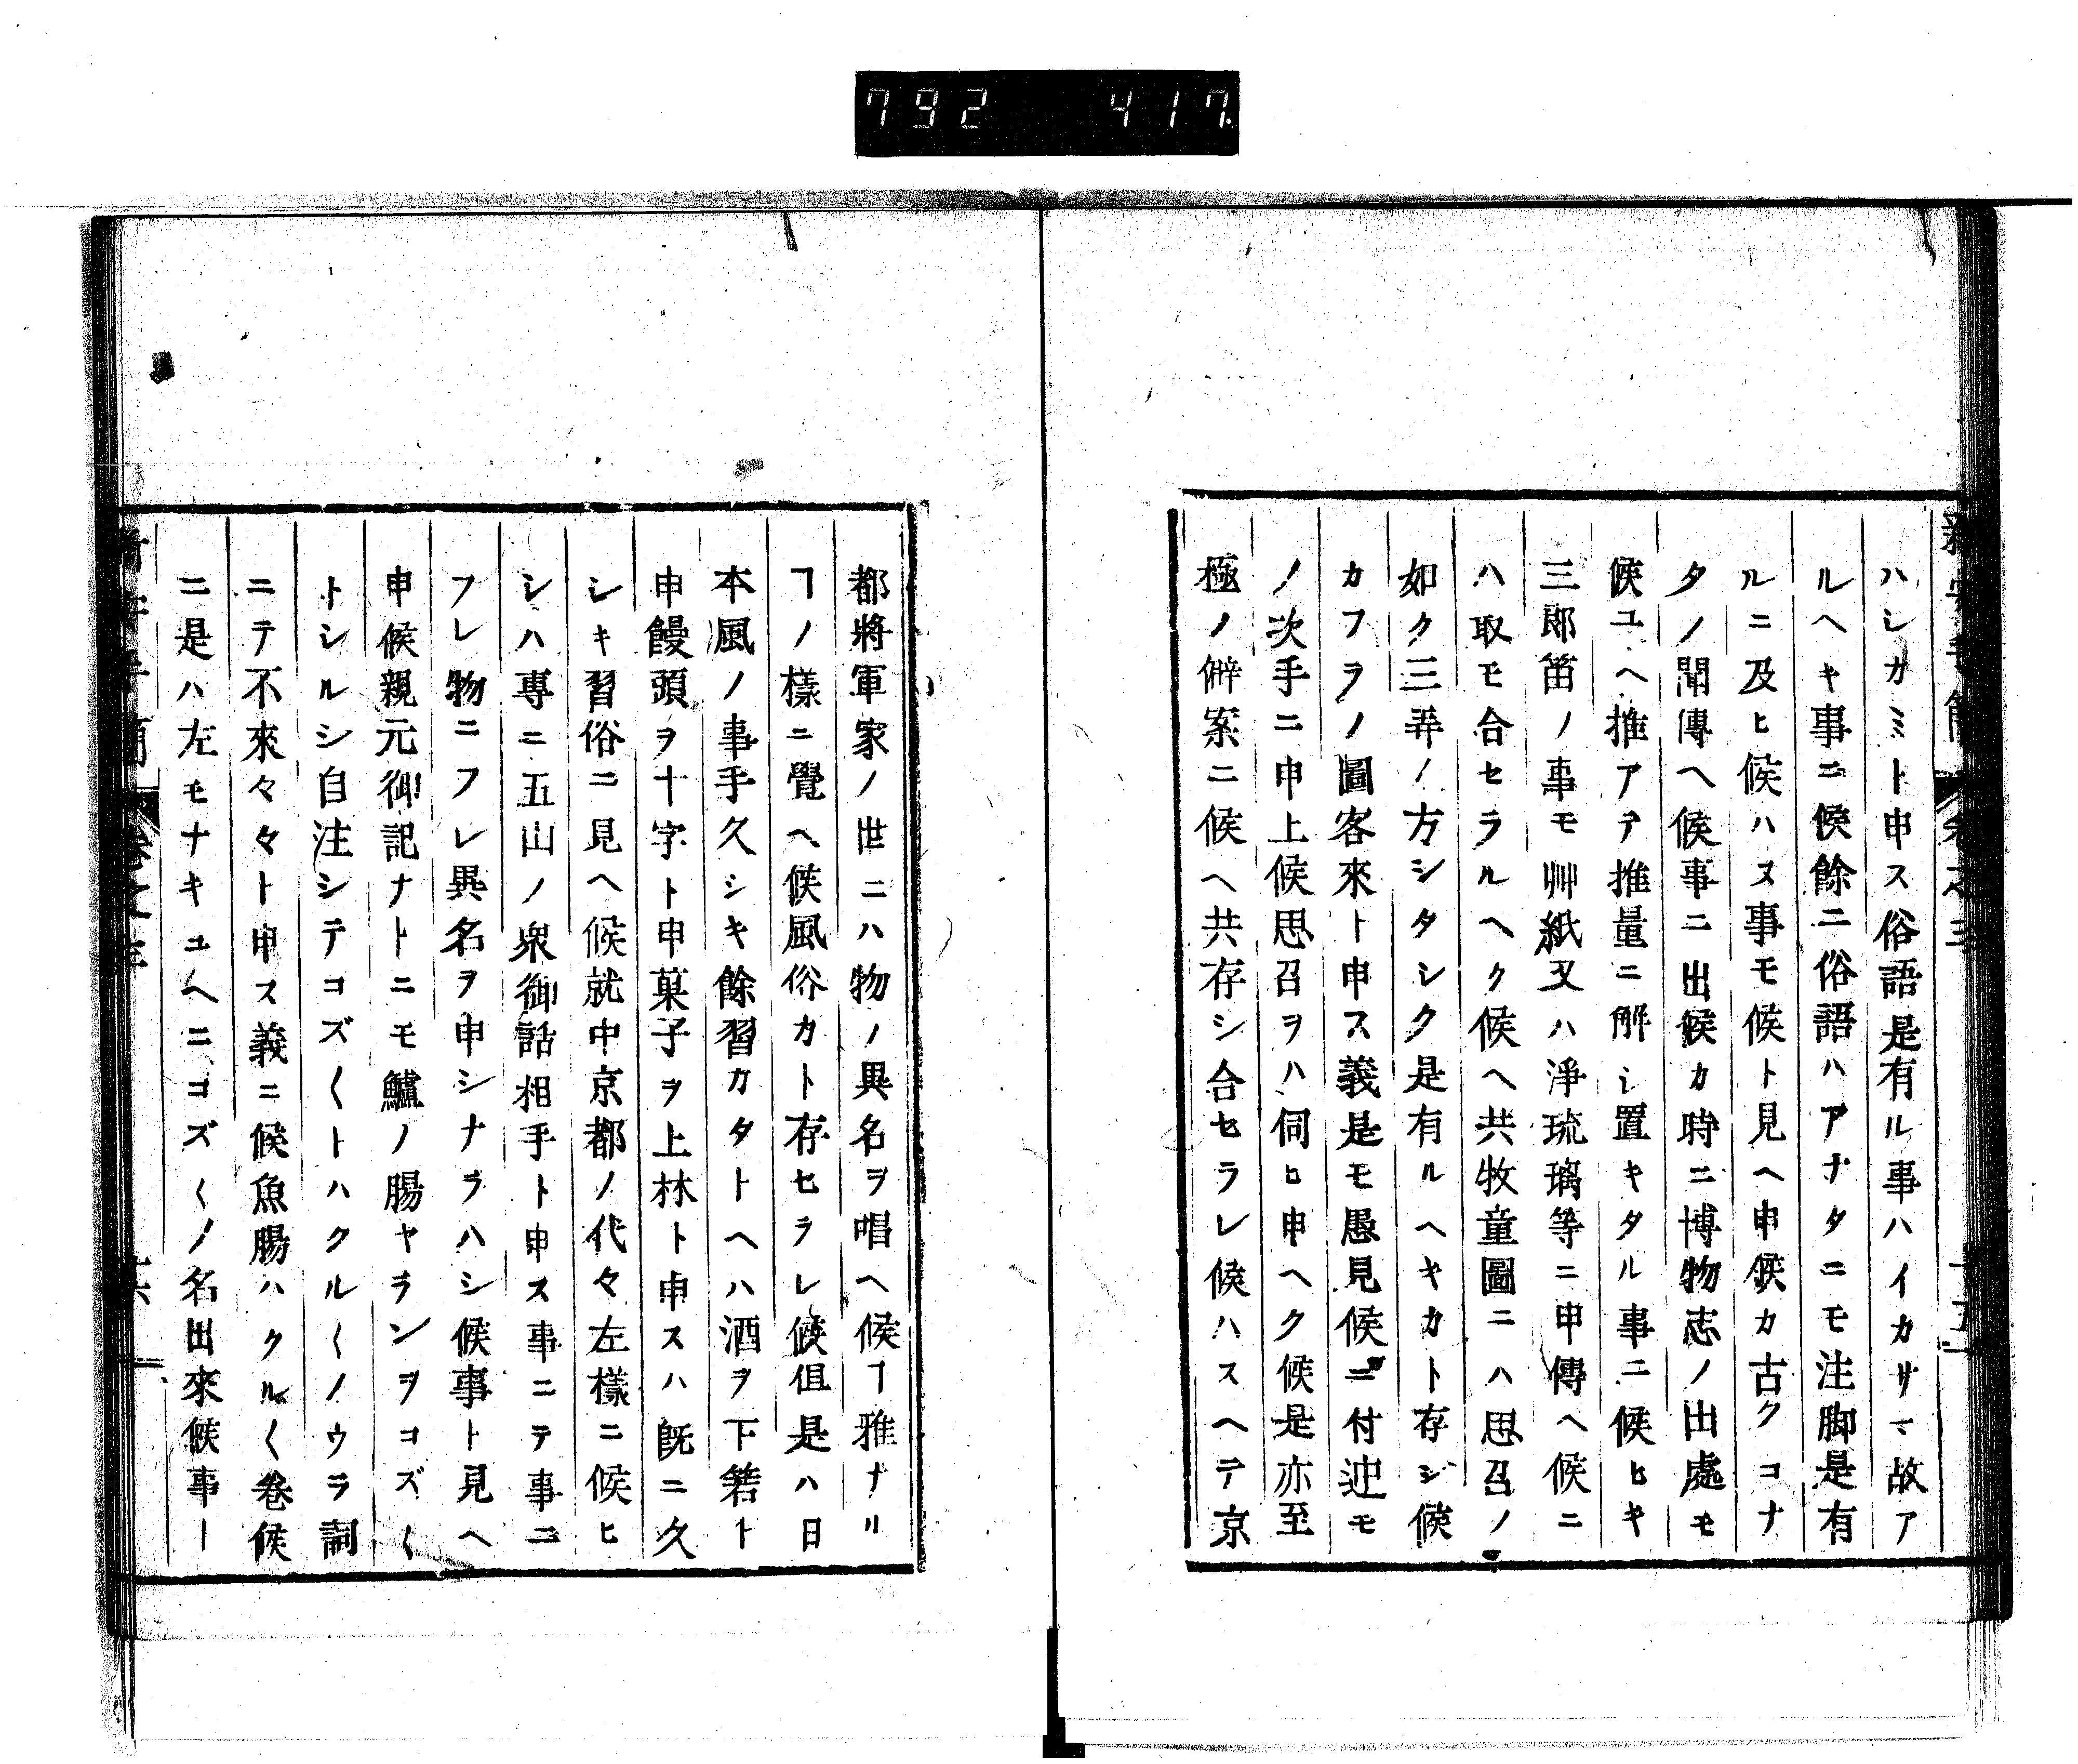 792 417
ハシカミト申ス俗語是有ル事ハイカサマ故ア
ルヘキ事ニ候餘ニ俗語ハアナタニモ注脚是有
ルニ及ヒ候ハヌ事モ候ト見ヘ申候カ古クコナ
タノ聞傳ヘ候事ニ出候カ時ニ博物志ノ出處モ
候ユヘ推アテ推量ニ解シ置キタル事ニ候ヒキ
三郎笛ノ事モ艸紙又ハ淨琉璃等ニ申傳ヘ候ニ
ハ取モ合セラルヘク候ヘ共牧童圖ニハ思召ノ
如ク三弄ノ方シタシク是有ルヘキカト存シ候
カフラノ圖客來ト申ス義是モ愚見候ニ付迚モ
ノ次手ニ申上候思召ヲハ伺ヒ申ヘク候是亦至
極ノ僻案ニ候ヘ共存シ合セラレ候ハスヘテ京
都將軍家ノ世ニハ物ノ異名ヲ唱ヘ候ヿ雅ナル
ヿノ樣ニ覺ヘ候風俗カト存セラレ候俱是ハ日
本風ノ事手久シキ餘習カタトヘハ酒ヲ下箬ト
申饅頭ヲ十字ト申菓子ヲ上林ト申スハ既ニ久
シキ習俗ニ見ヘ候就中京都ノ代々左樣ニ候ヒ
シハ專ニ五山ノ衆御話相手ト申ス事ニテ事ニ
フレ物ニフレ異名ヲ申シナラハシ候事ト見ヘ
申候親元御記ナトニモ鱸ノ腸ヤランヲコズ〱
トシルシ自注シテコズ〱トハクル〱ノウラ詞
ニテ不來々々ト申ス義ニ候魚腸ハクル〱卷候
ニ是ハ左モナキユヘニコズ〱ノ名出來候事ー